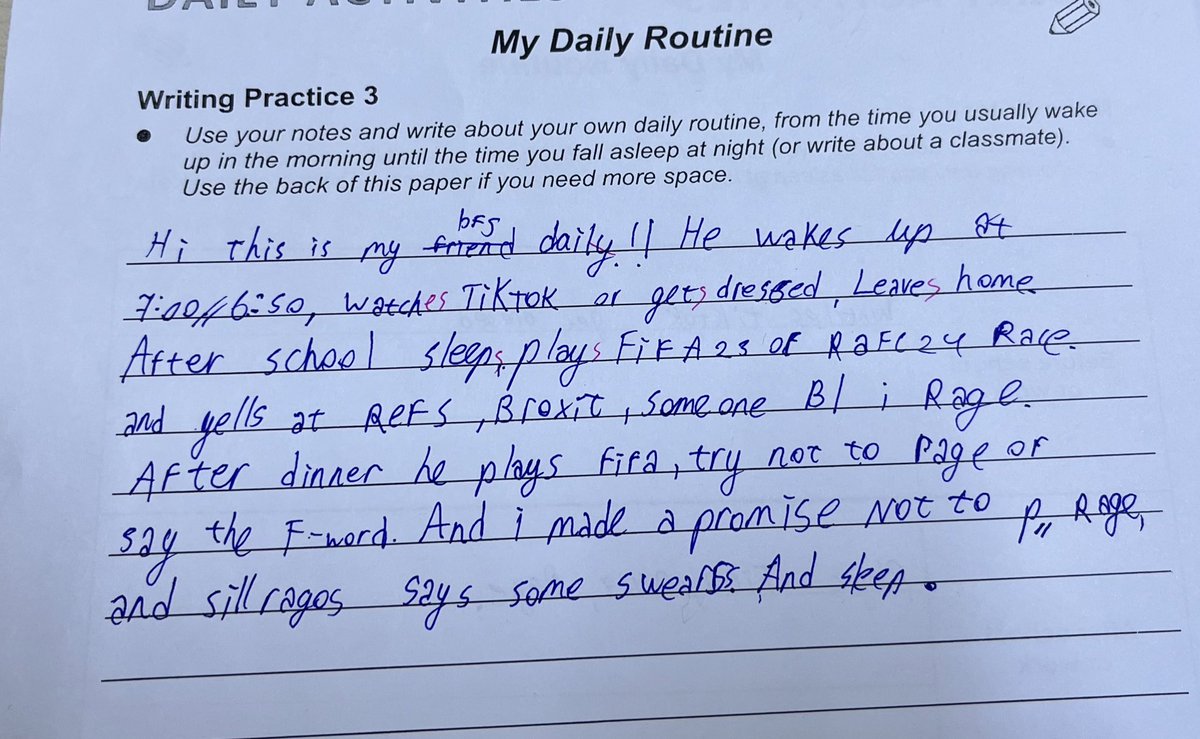 DAILY ACTIVITIES
My Daily Routine
Writing Practice 3
● Use your notes and write about your own daily routine, from the time you usually wake
up in the morning until the time you fall asleep at night (or write about a classmate).
Use the back of this paper if you need more space.
bFs
Hi this is my friend daily!! He wakes up at
7:00//6:50, watches TikTok or gets dressed, Leaves home
After school sleeps, plays FiFA23 or Race.
and yells at Refs, Broxit, some one i Rage.
After dinner he plays fifa, try not to Rage or
say the F-word. And i made a promise Not to Rage,
and sill rages says some swears. And sleep.